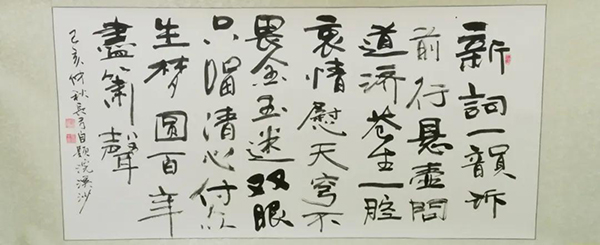 新詞一韻訴
前行懸壺問
道濟蒼生一腔
衷情慰天穹不
畏金玉迷双眼
只留清心付众
生梦圓百年
盡箫聲
己亥仲秋長弓自題浣溪沙